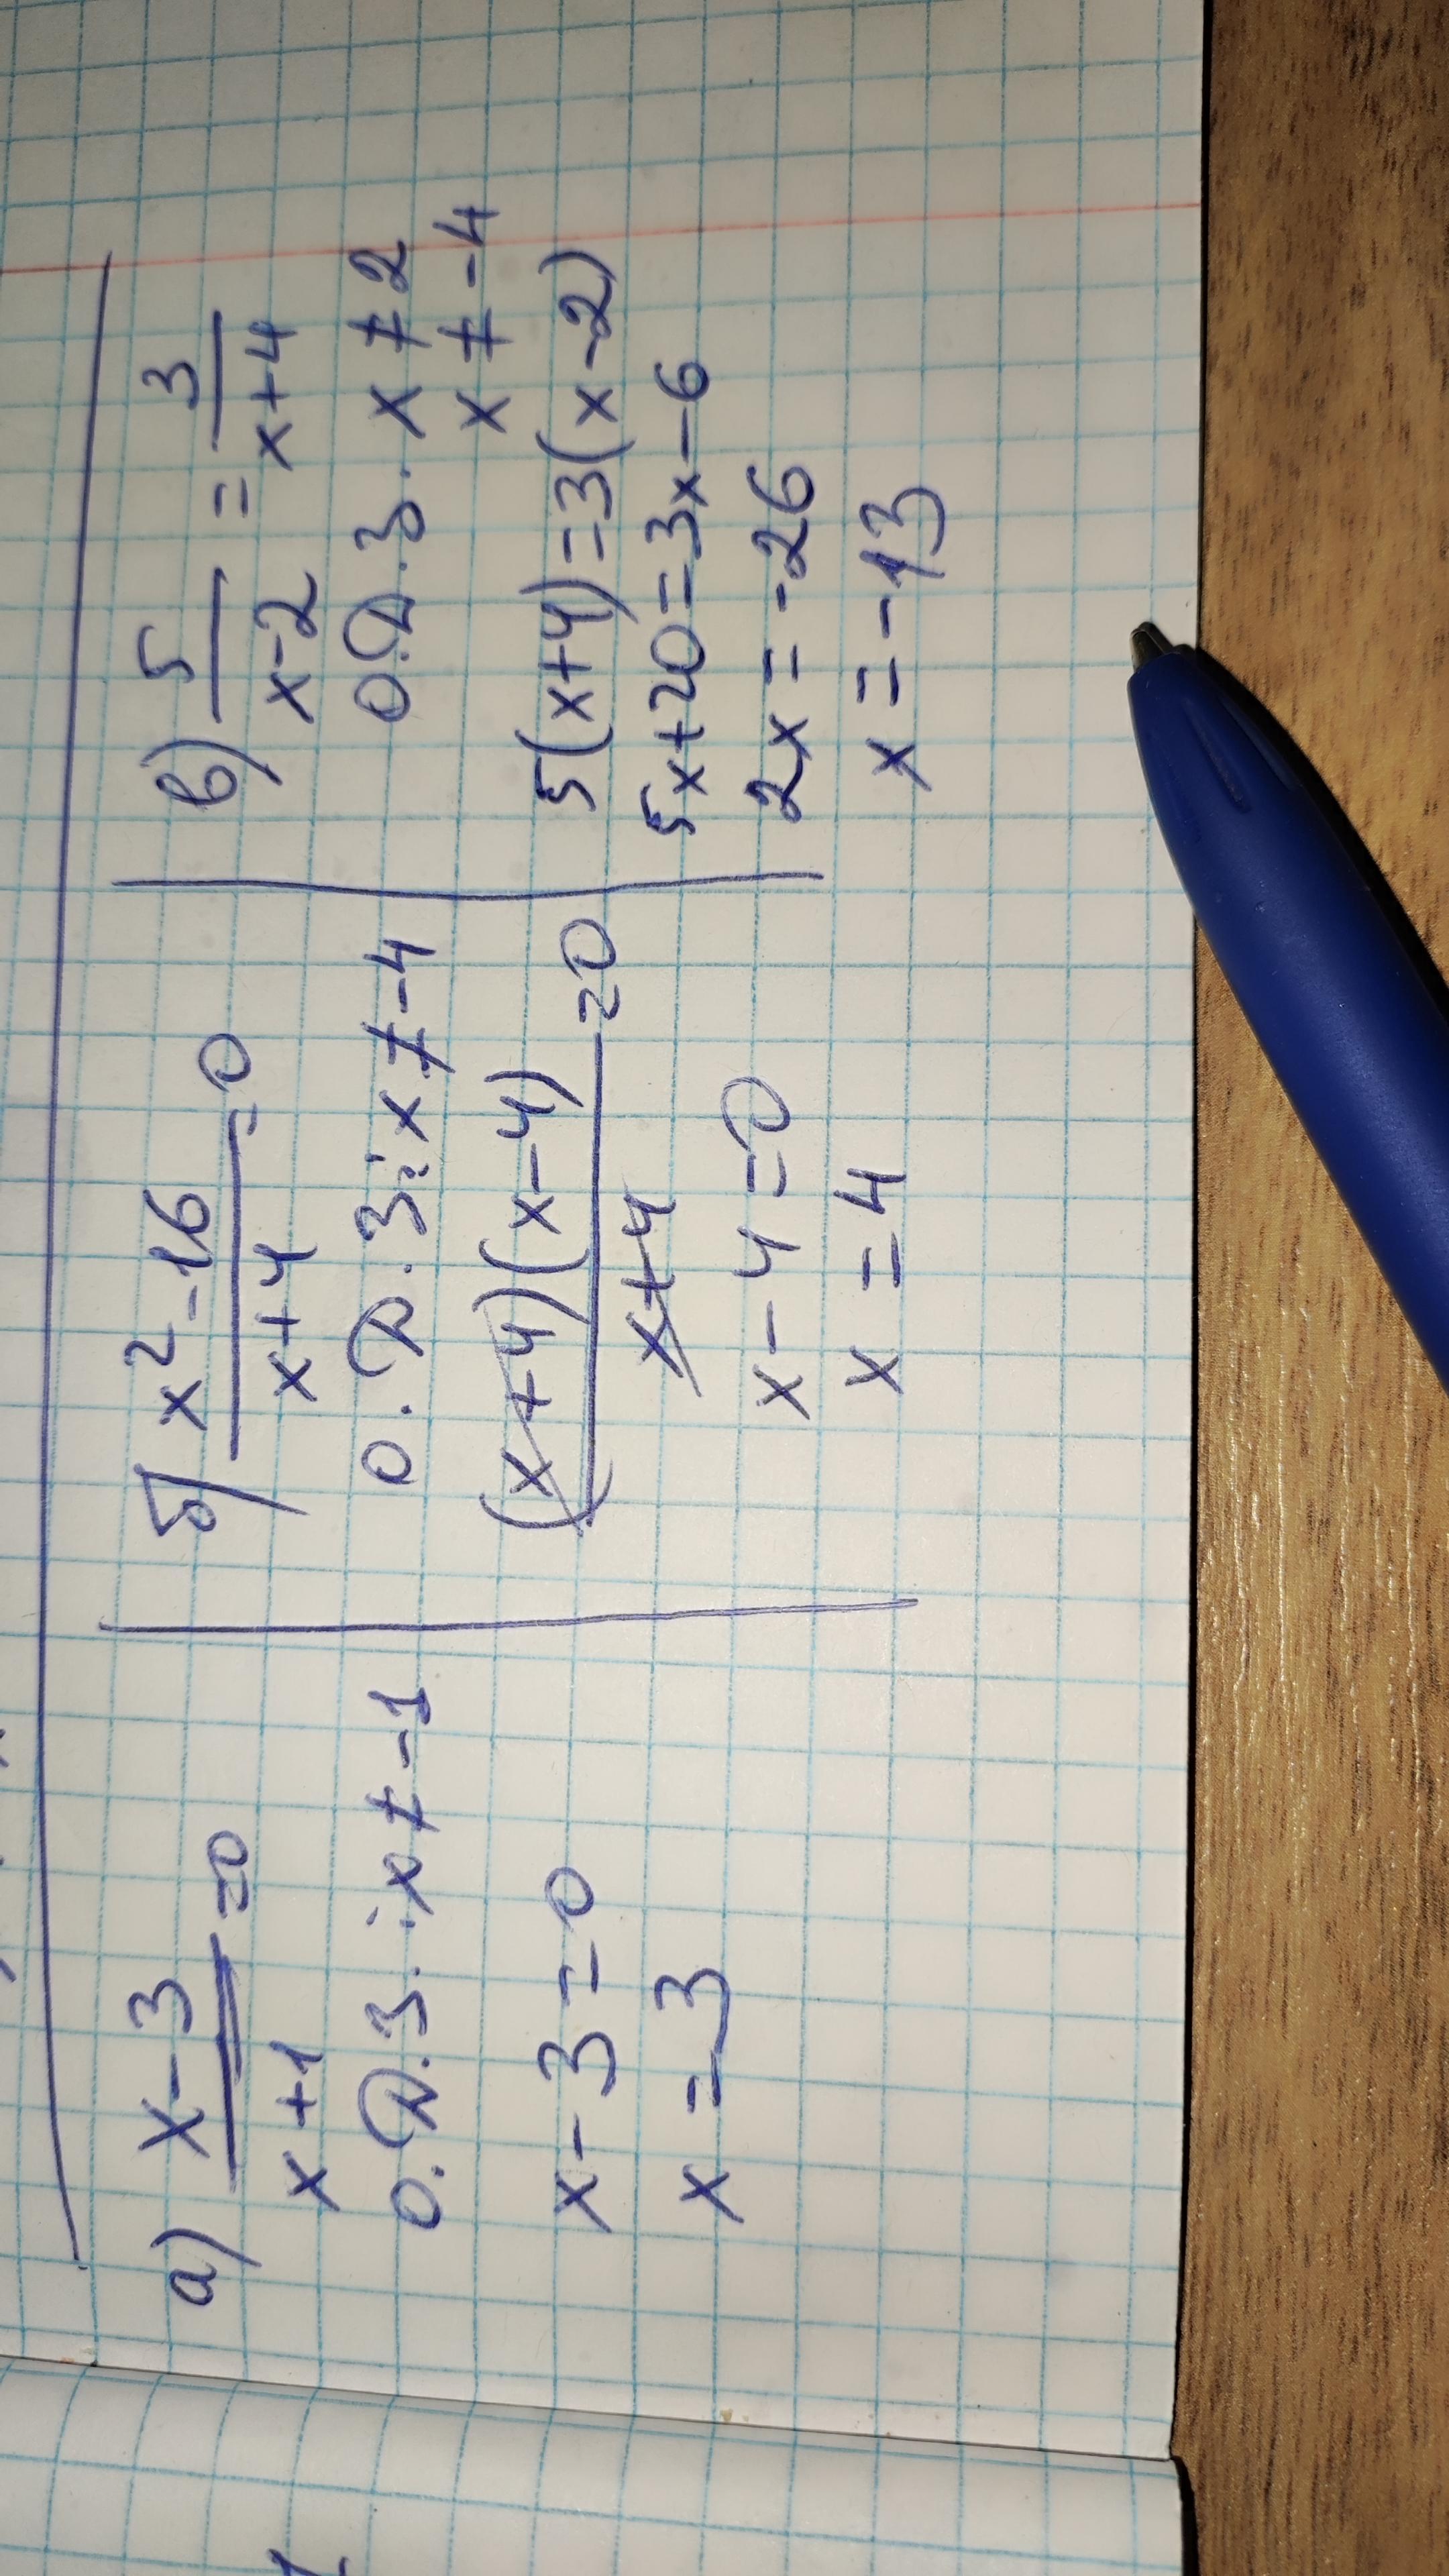 а) x-3 =0
x+1
О.Д.З.: x≠-1
x-3=0
x=3
б) x²-16 =0
x+4
О.Д.З.: x≠-4
(x+4)(x-4) =0
x+4
x-4=0
x=4
в) 5 = 3
x-2 x+4
О.Д.З. x≠2
x≠-4
5(x+4)=3(x-2)
5x+20=3x-6
2x=-26
x=-13